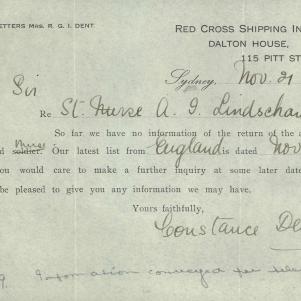 ETTERS MRS. R. G. I. DENT.
RED CROSS SHIPPING IN
DALTON HOUSE,
115 PITT S
Sydney, Nov. 21
Sir
Re St. Nurse A. G. Lindscha
So far we have no information of the return of the a
d soldier. Nurse. Our latest list from England is dated Nov
ou would care to make a further inquiry at some later date
be pleased to give you any information we may have.
Yours faithfully,
Constance De
9. Information conveyed per